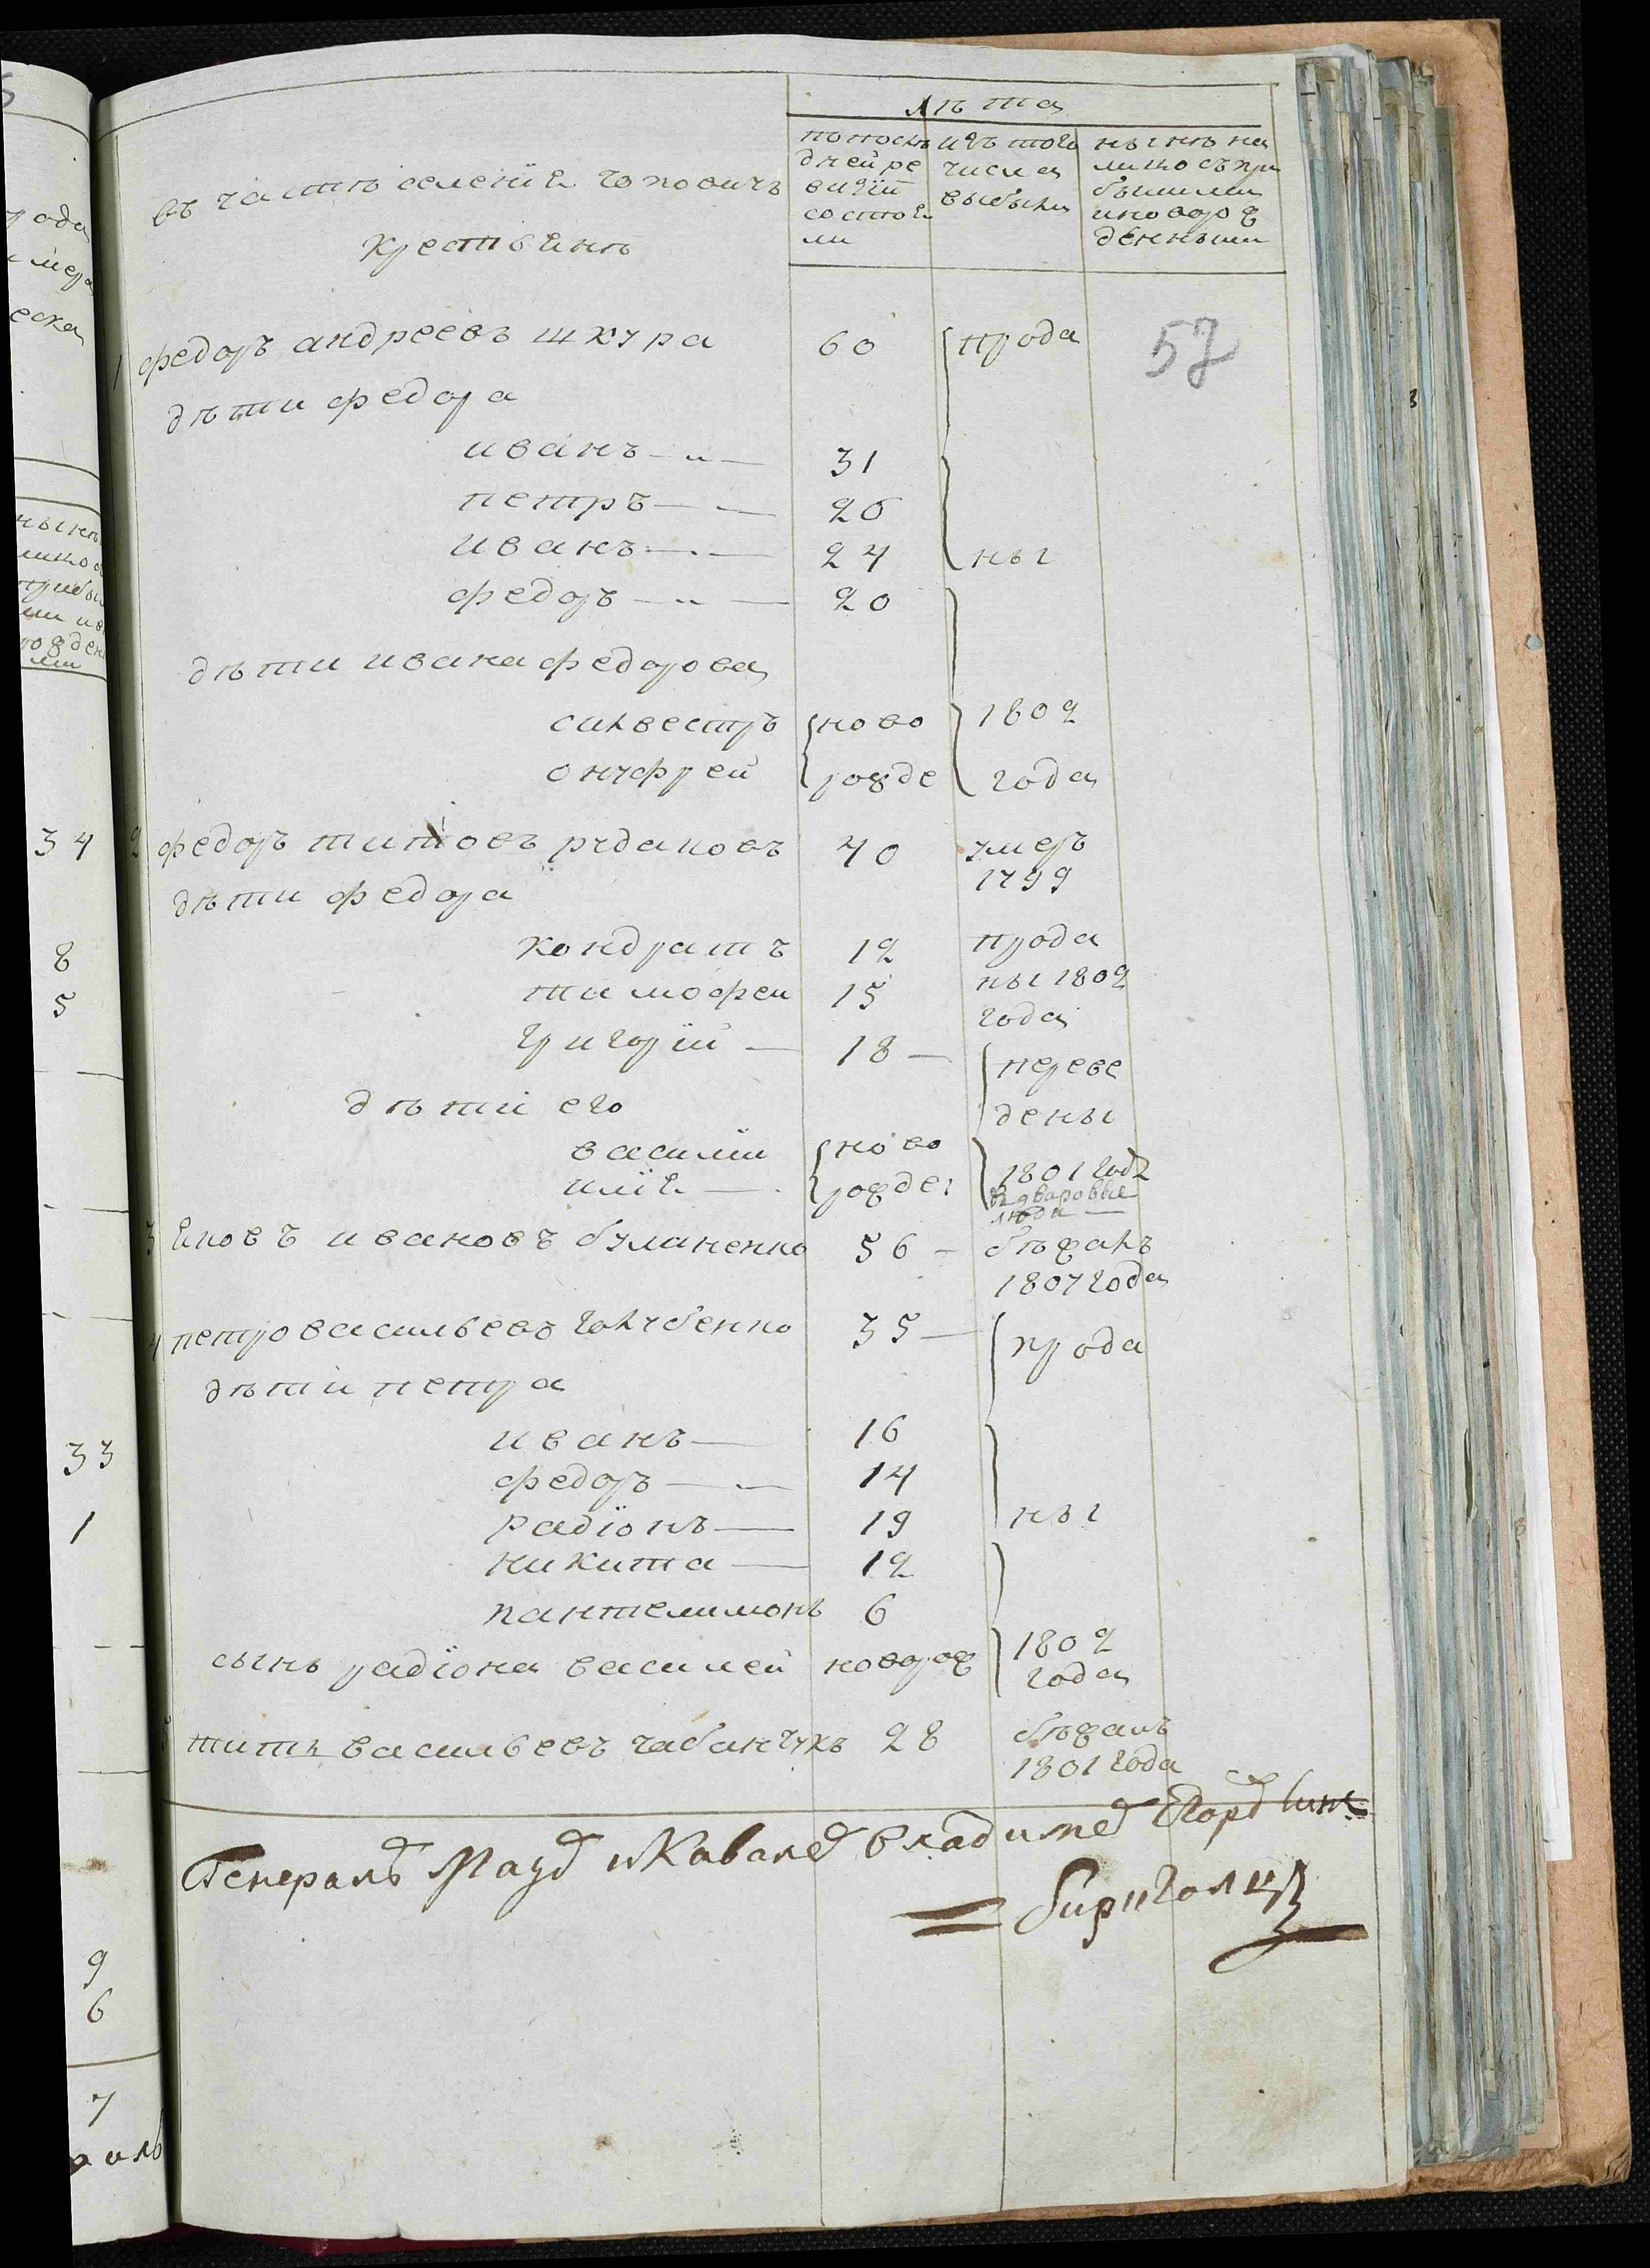 лѣта
въ частѣ селенія
крестьянъ
по после
дней ре
визіи
состоя
ли
изъ того
числа
выбыли
нынѣ на
лицо съ при
былыми
и новорож
денными
57
1 федоръ андреевъ шкура 60 прода
дѣти федора
иванъ 31
петръ 26
иванъ 24 ны
федоръ 20
дѣти ивана федорова
силвестръ ново 1802
онуфрей рожде года
2 федоръ титовъ рудаковъ 40 умеръ
1799
дѣти федора
кондратъ 12 прода
тимофеи 15 ны 1802
года
григорій 18 переве
дѣти его дены
василіи ново
илія рожде: 1801 год
въ дваровые
люди
3 яковъ ивановъ буланенко 56 бѣжалъ
1807 года
4 петро васильевъ голубенко 35 прода
дѣти петра
иванъ 16
федоръ 14
радіонъ 19 ны
никита 12
пантелимонъ 6
сынъ радіона василей новорож 1802
года
5 титъ васильевъ чабанчукъ 28 бѣжалъ
1801 года
Генералъ Маіоръ и Кавалеръ Владимеръ Егоровъ сынъ
34
8
5
33
1
9
6
7